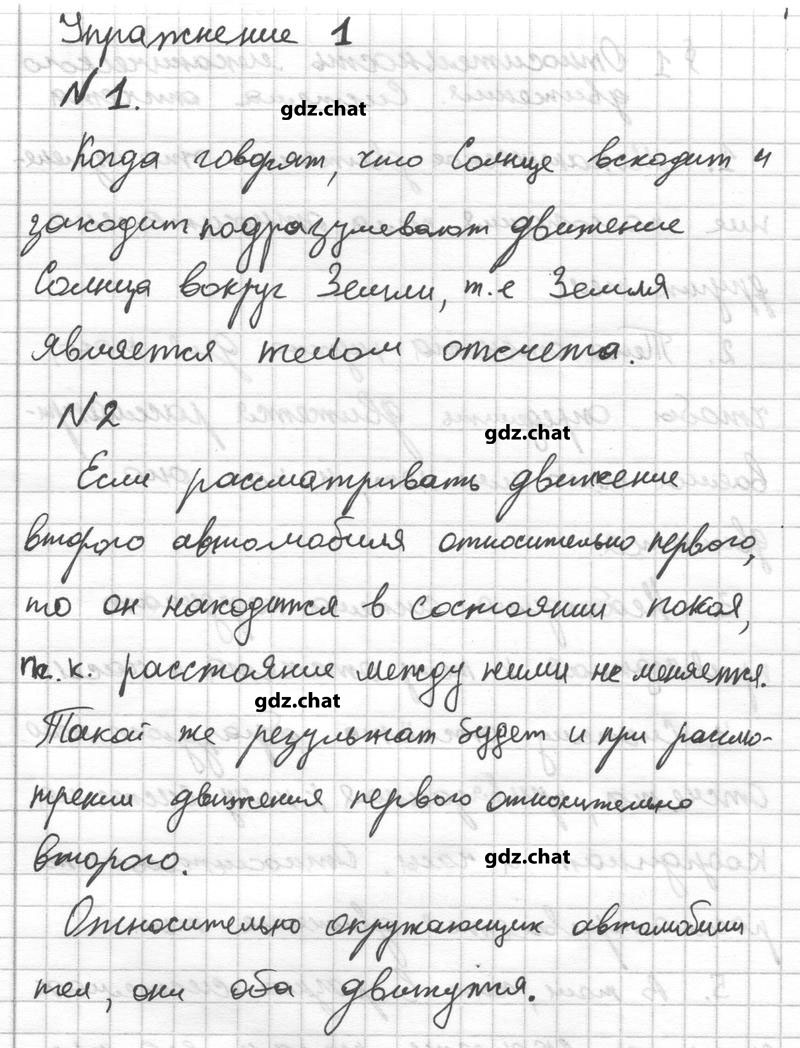 Упражнение 1
№ 1.
gdz.chat
Когда говорят, что Солнце всходит и
заходит подразумевают движение
Солнца вокруг Земли, т.е Земля
является телом отсчета.
№2
gdz.chat
Если рассматривать движение
второго автомобиля относительно первого,
то он находится в состоянии покоя,
т. к. расстояние между ними не меняется.
gdz.chat
Такой же результат будет и при рассмо-
трении движения первого относительно
второго.
gdz.chat
Относительно окружающих автомобили
тел, они оба движутся.